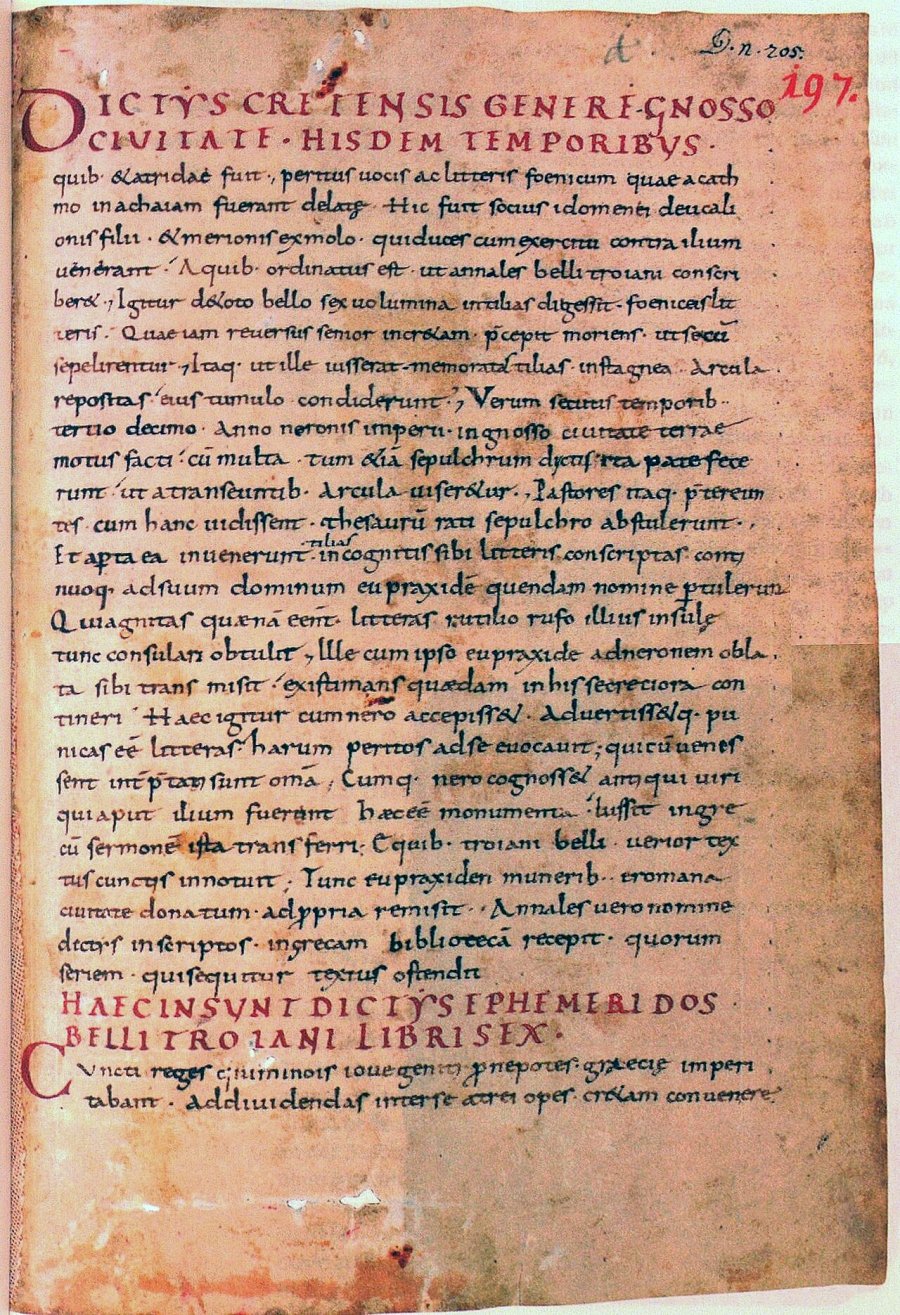 d
D. n. 205.
197.
DICTYS CRETENSIS GENERE GNOSSO
CIUITATE · HISDEM TEMPORIBUS ·
quib· &atridae fuit ·, peritus uocis ac litteris foenicum quae a cath
mo in achaiam fuerant delatę · Hic fuit socius idomenei deucali
onis filii · & merionis ex molo · qui duces cum exercitu contra ilium
uenerant · A quib· ordinatus est · ut annales belli troiani conscri
ber& ·, Igitur d&oto bello sex uolumina in tilias digessit · foeniceis lit
teris · Quae iam reversus senior in cr&am · p̄cepit moriens · ut secū
sepelirentur ·, Itaq· ut ille iusserat · memoratas tilias · in stagnea Arcula
repositas · eius tumulo condiderunt ·, Verum secutis temporib··
tertio decimo · Anno neronis imperii · in gnosso ciuitate terrae
motus facti · cū multa · tum &iā sepulchrum dictis ita patefece
runt · ut a transeuntib· Arcula uiser&ur ·, Pastores itaq· p̄tereun
tes · cum hanc uidissent · thesaurū rati sepulchro abstulerunt ·,
Et aꝑta ea inuenerunt · tilias incognitis sibi litteris conscriptas conti
nuoq· ad suum dominum eupraxidē quendam nomine ꝑtulerun
Qui agnitas quænā eēnt · litteras rutilio rufo illius insulę
tunc consulari obtulit ·, Ille cum ipso eupraxide ad neronem obla
ta sibi transmisit · existimans quædam in his secreciora con
tineri · Haec igitur cum nero accepiss& · Aduertiss&q· pu
nicas eē litteras · harum peritos ad se euocauit ; qui cū uenes
sent int̄p̄tati sunt omā ; Cumq· nero cognoss& antiqui uiri
qui aput ilium fuerunt hæc eē monumenta · Iussit in gre
cū sermonē ista transferri ; E quib· troiani belli · uerior tex
tus cunctis innotuit ; Tunc eupraxiden munerib·· & romana
ciuitate donatum · ad ꝓpria remisit ·· Annales uero nomine
dictys inscriptos · in grecam bibliotecā recepit · quorum
seriem · qui sequitur textus ostendit
HAEC INSUNT DICTYS EPHEMERIDOS
BELLI TROIANI LIBRI SEX ·
Cuncti reges qui minois ioue geniti ꝓnepotes · graecię imperi
tabant · Ad diuidendas inter se atrei opes · cr&am conuenere ·